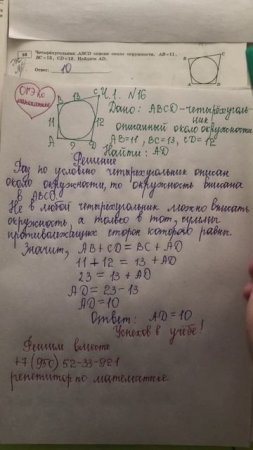 Четырёхугольник ABCD описан около окружности, AB=11,
BC=13, CD=12. Найдите AD.
Ответ: 10
B
C
Ч.1. №16
B 13 C
11
12
A 9 D
Дано: ABCD-четырёхуголь
ник
описанный около окружности
AB=11, BC=13, CD=12
Найти: AD
Решение
по условию четырехугольник описан
около окружности, то окружность вписана
в ABCD.
Не в любой четырехугольник можно вписать
окружность, а только в тот, суммы
противолежащих сторон которого равны.
Значит, AB+CD=BC+AD
11+12=13+AD
23=13+AD
AD=23-13
AD=10
Ответ: AD=10
Успехов в учёбе!
Решим вместе
+7(950)52-33-921
репетитор по математике.